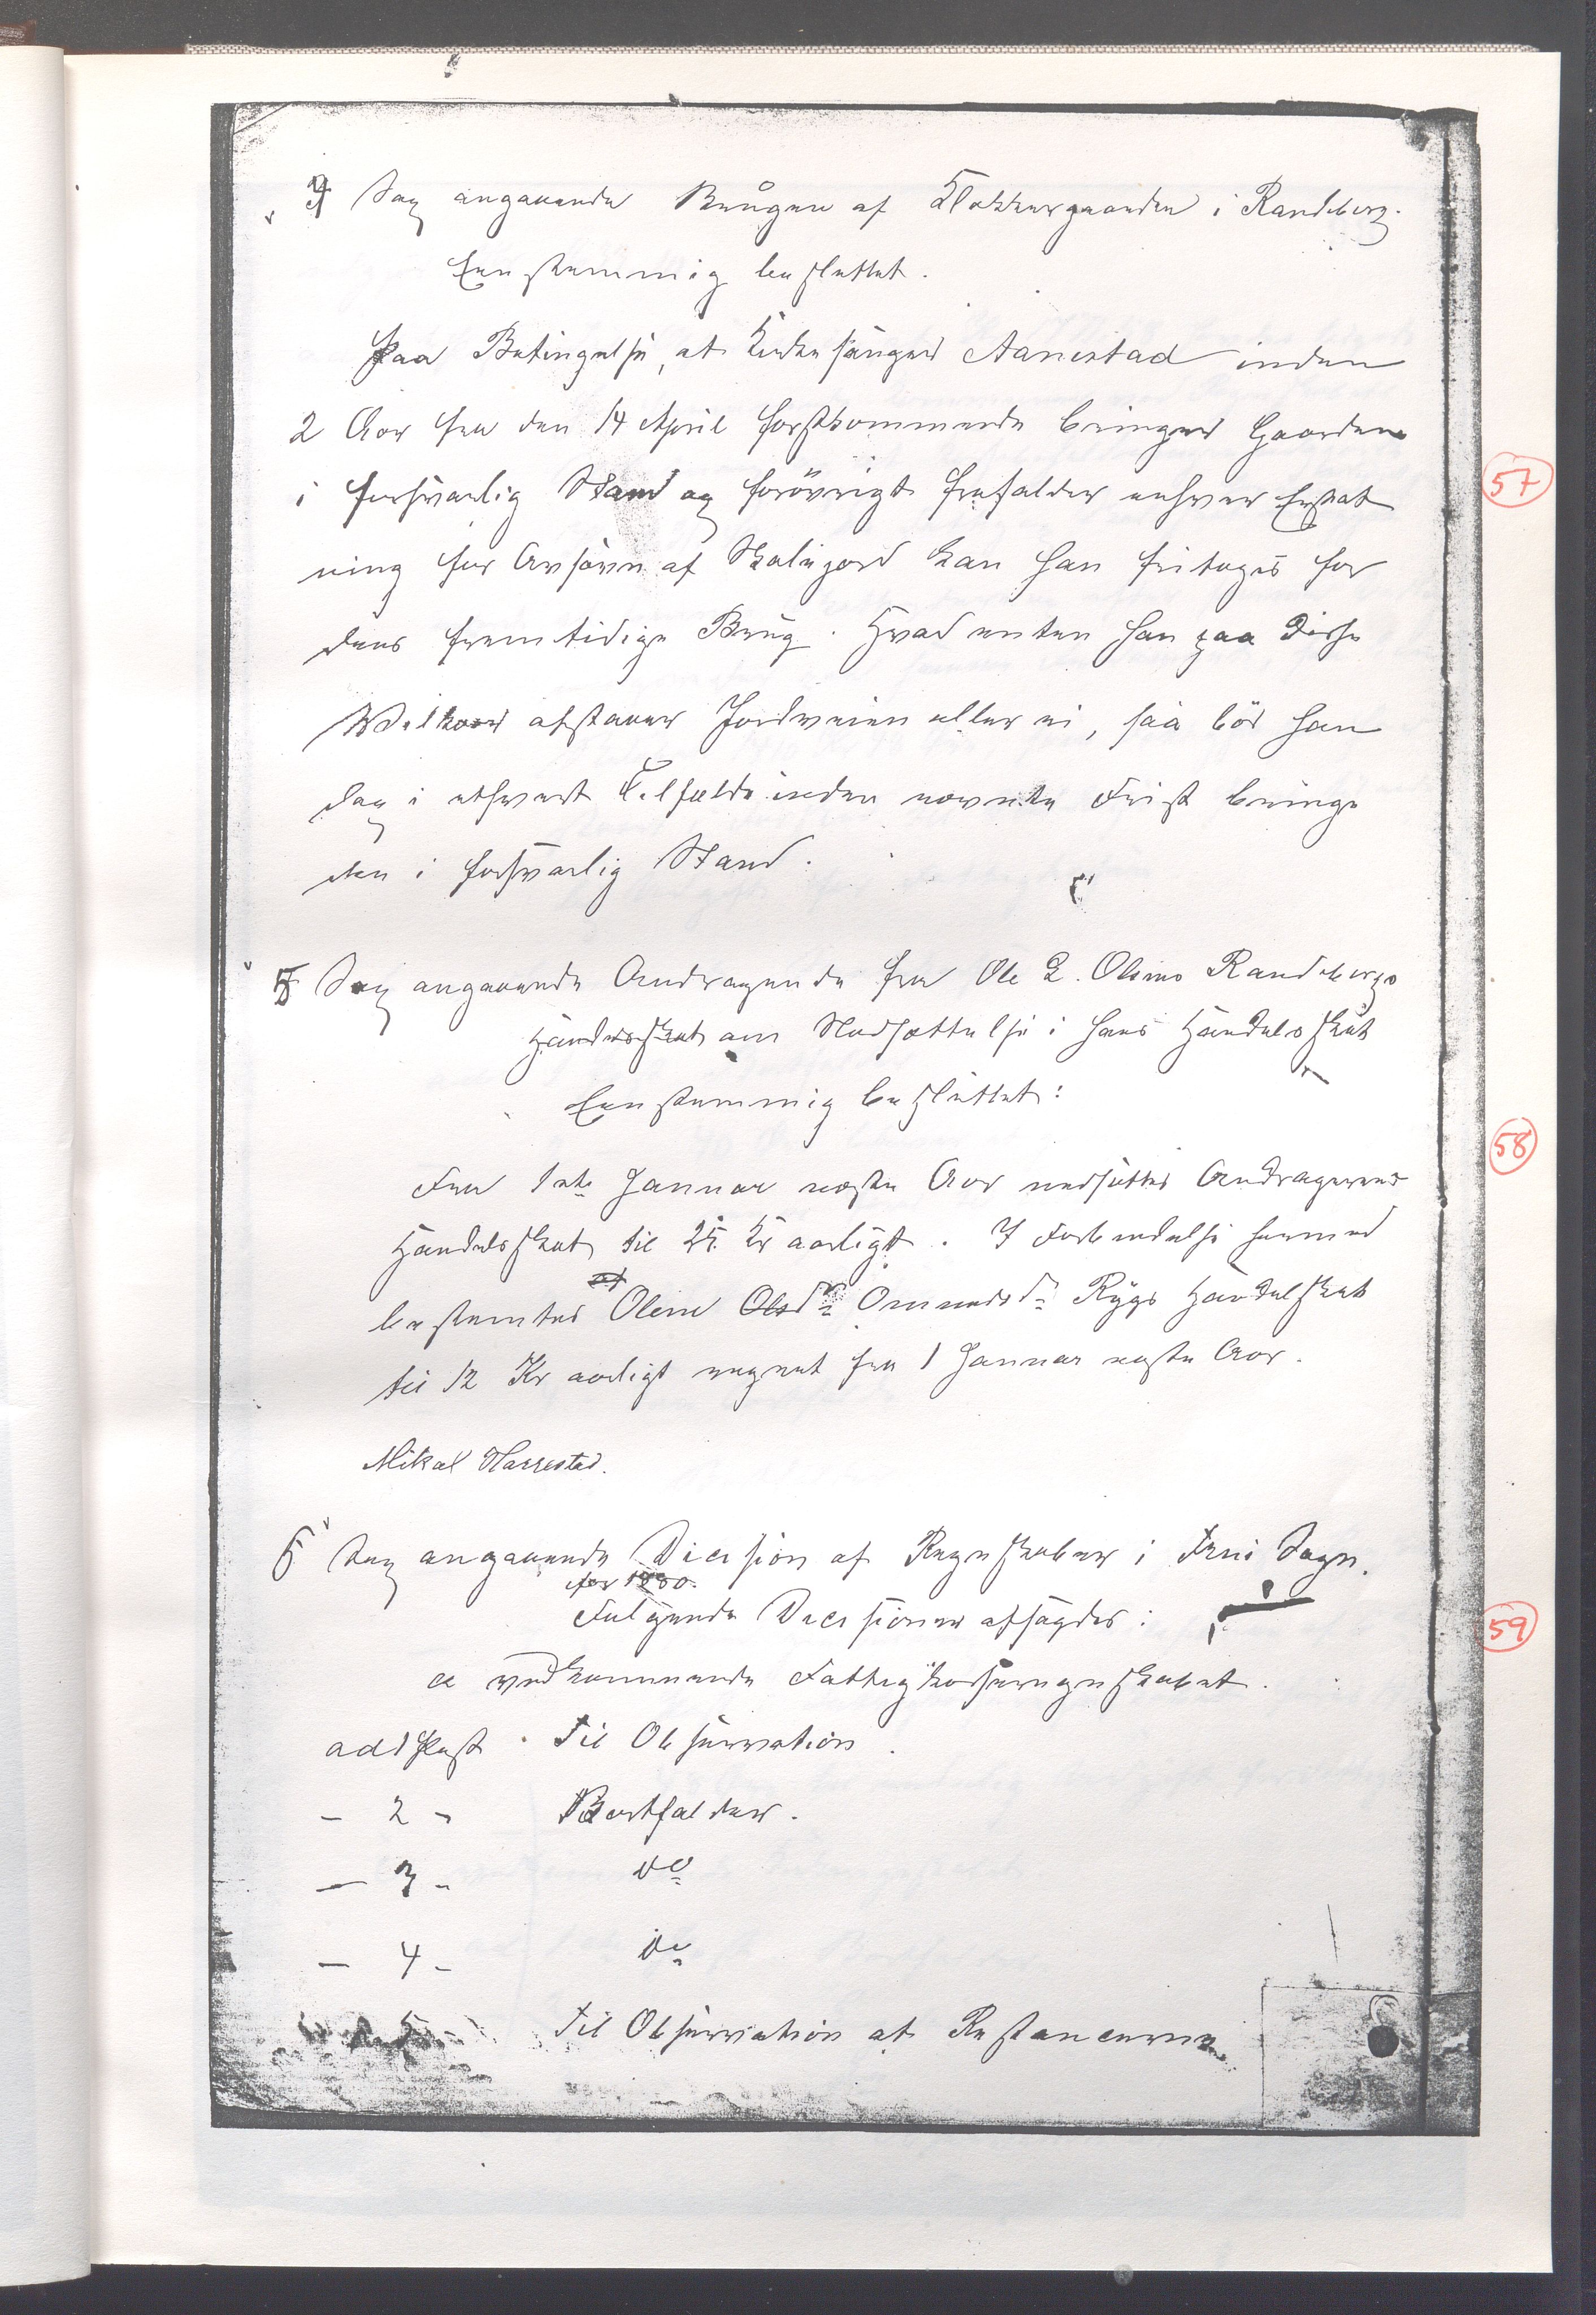 4 Sag angaaende Brugen af Klokkergaarden i Randeberg.
Eenstemmig besluttet.
Paa Betingelse, at Kirkesanger Aanestad inden
2 Aar fra den 14 April førstkommende bringer Gaarden
i forsvarlig Stand og forøvrigt frafalder enhver Erstat
ning for Avsavn af Skolejord kan han fritages for
dens fremtidige Brug. Hvad enten han paa disse
Vilkaar afstaaer Jordveien eller ei, saa bør han
dog i ethvert Tilfælde inden nævnte Frist bringe
den i forsvarlig Stand.
5 Sag angaaende Andragende fra Ole L. Olsens Randebergs
Handelsskat om Nedsættelse i hans Handelsskat
Eenstemmig besluttet:
Fra 1ste Januar næste Aar nedsættes Andragerens
Handelsskat til 24 Kr aarligt. I Forbindelse hermed
bestemtes at Olene Olsdr Omundsdr Rygs Handelskat
til 12 Kr aarligt regnet fra 1 Januar næste Aar.
Mikal Harrestad.
6 Sag angaaende Decision af Regnskaber i Fem Sogn.
for 1880.
Følgende Decisioner afsagdes:
a vedkommende Fattigkasseregnskabet.
ad 1 Post Til Observation.
- 2 - Bortfalder.
- 3 - do
- 4 - do
5 - Til Observation at Restancerne
57
58
59